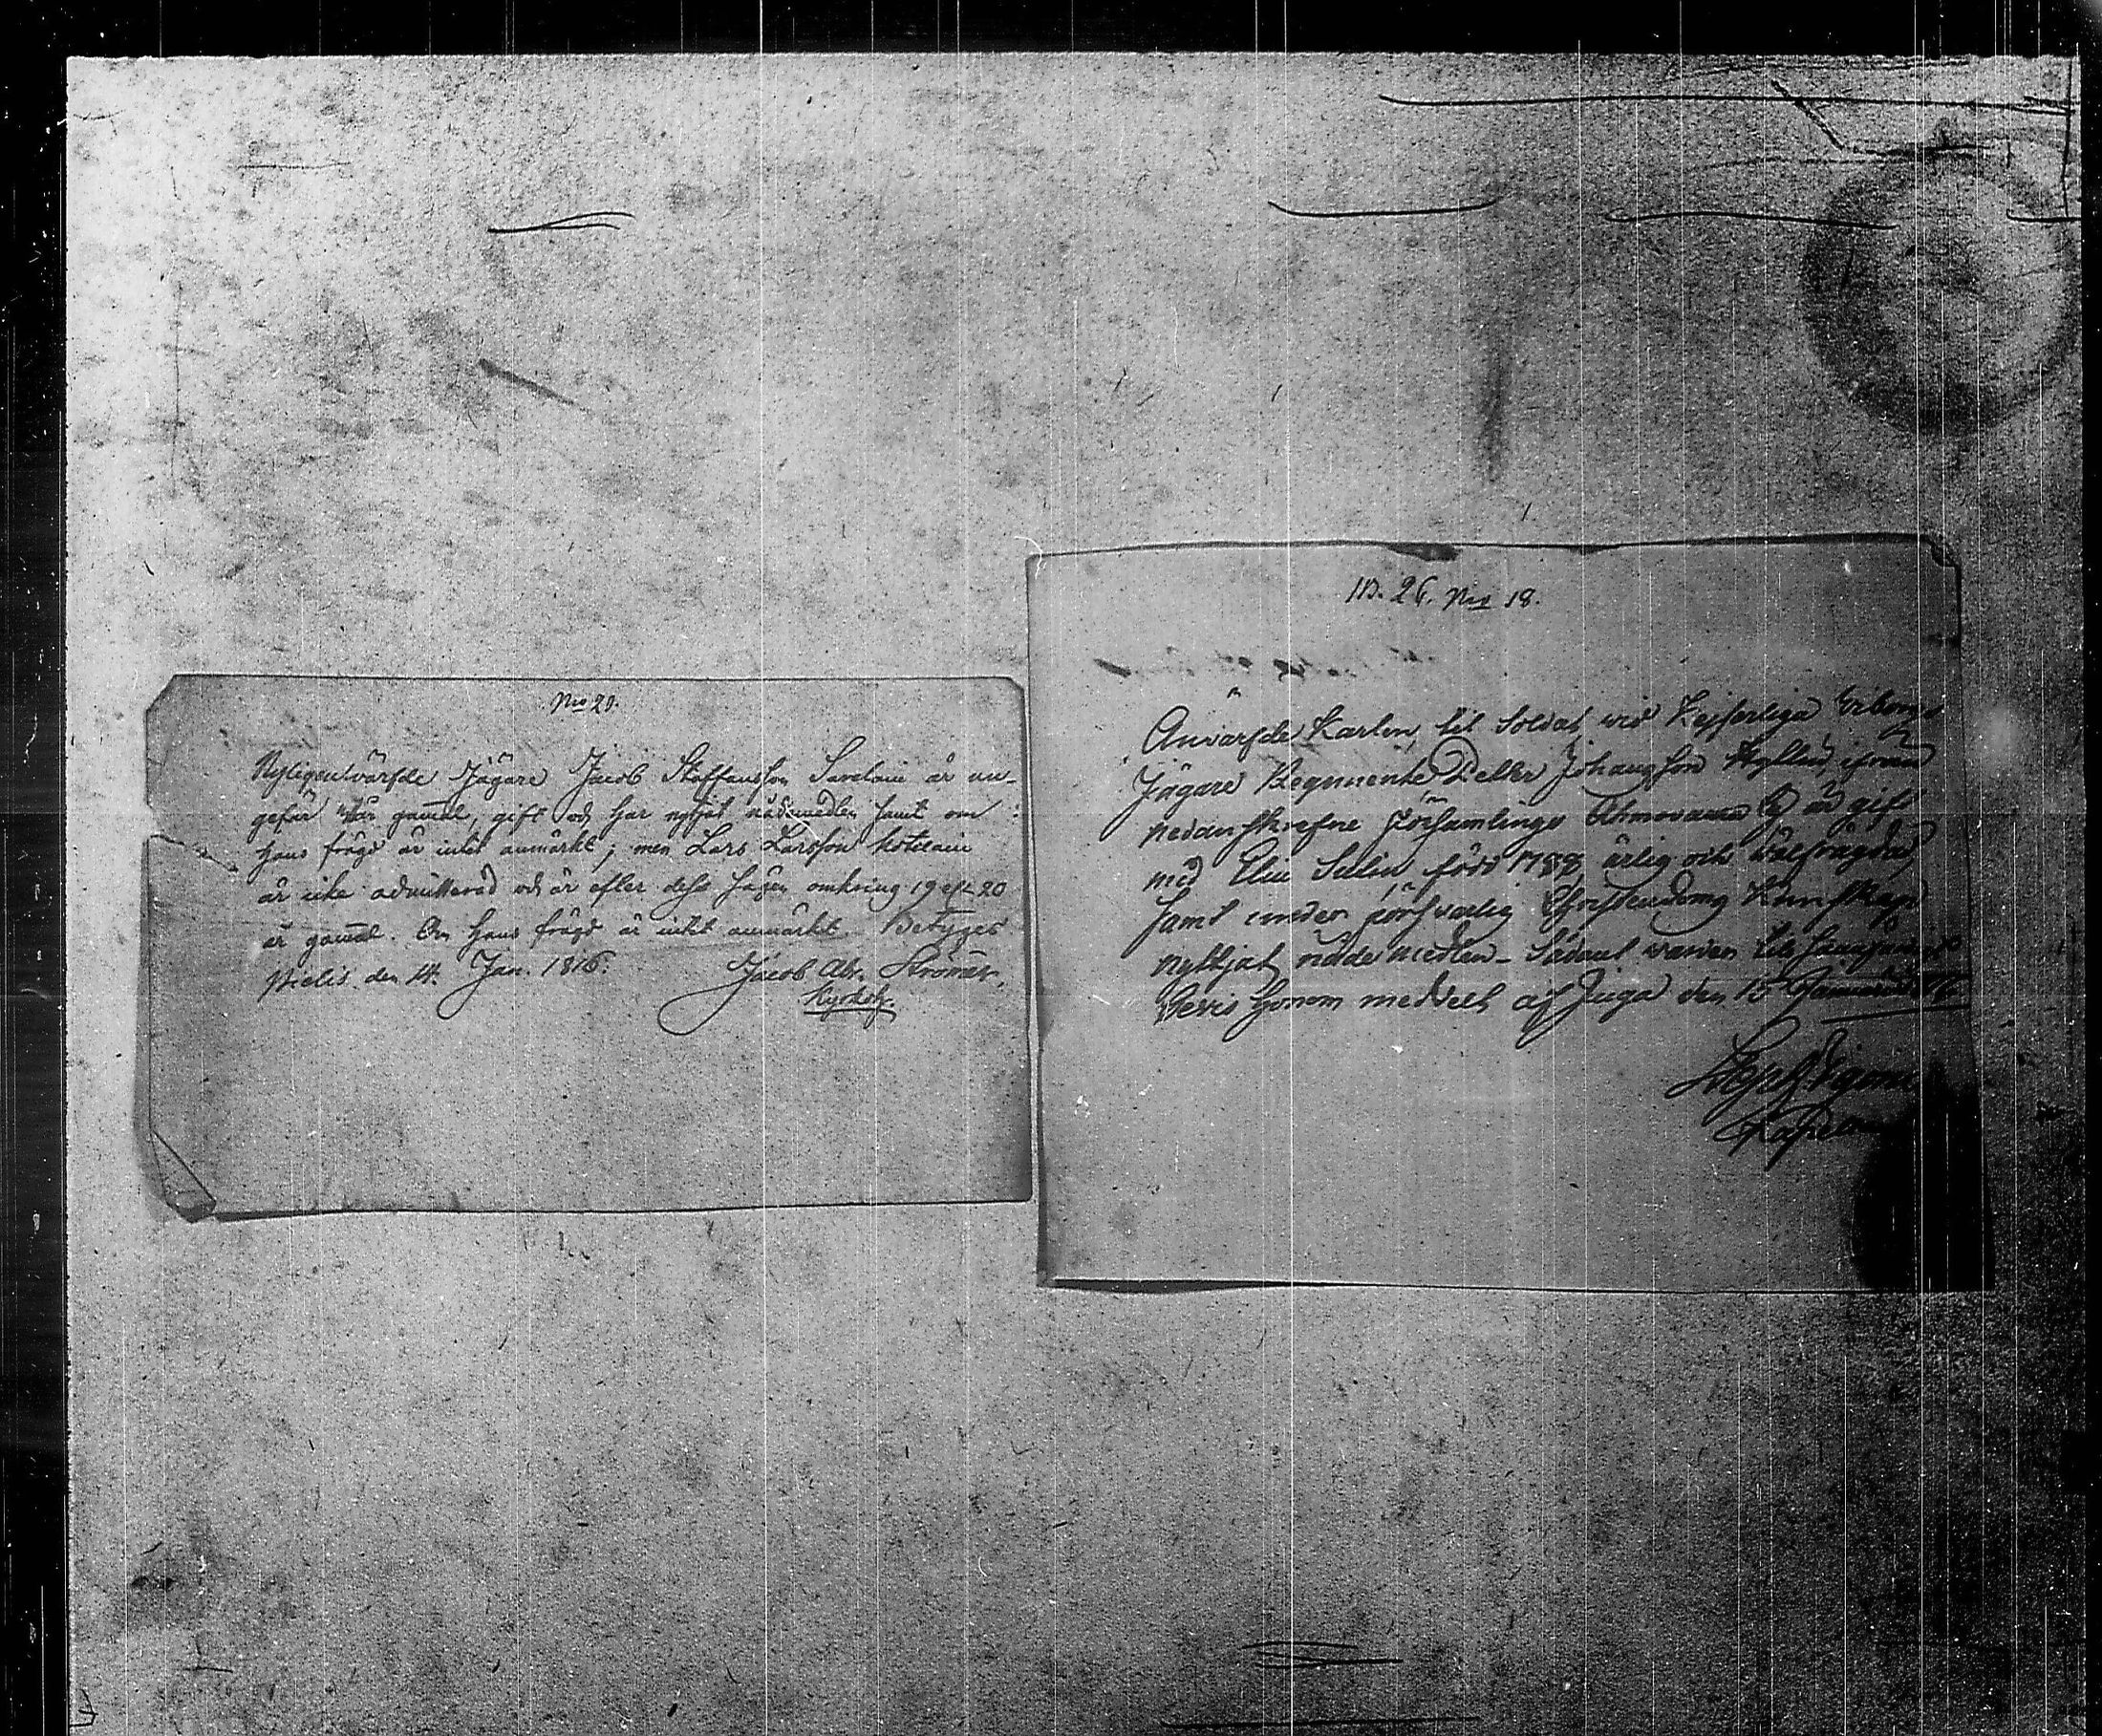 No 20.
Nyligenvärfde Jägare Jacob Staffansson Savelain är un-
gefär år gamal, gift och har nyttjat nådemedlen samt om
hans frägd är intet anmärkt; men Lars Larsson
är icke admitterad och är efter dess sägen omkring 19 eft 20
år gamal. Om hans frägd är intet anmärkt. Betyges
Pielis. den 14. Jan. 1816. Jacob Abr. Stromär.
No 18.
Anvärfde Karlen, til Soldat vid Kejserliga Viborgs
Jägare Regimente Petter Johansson ifrån
nedanskrefne församlings är gift
med född 1788, ärlig och välfrägdad,
samt under försvarlig Christendoms Kunskap
nyttjat nådemedlen. Sådant warder
bevis honom meddelt af Juga den 15